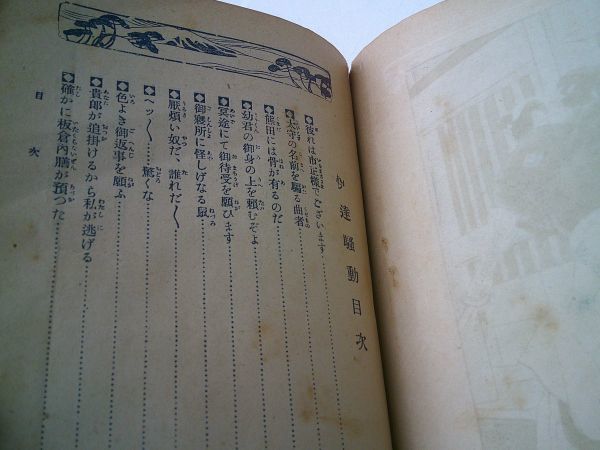 伊達騒動目次
◆俊れは市正様でございます
◆太守の名前を騙る曲者
◆熊田には骨が有るのだ
◆幼君の御身の上を頼むぞよ
◆冥途にて御待受を願ひます
◆御寝所に怪しげなる鼠
◆厭煩い奴だ、誰れだ〱
◆ヘッ〱、驚くな
◆色よき御返事を願ふ
◆貴郎が追掛けるから私が逃げる
◆確かに板倉内膳が預つた
目次